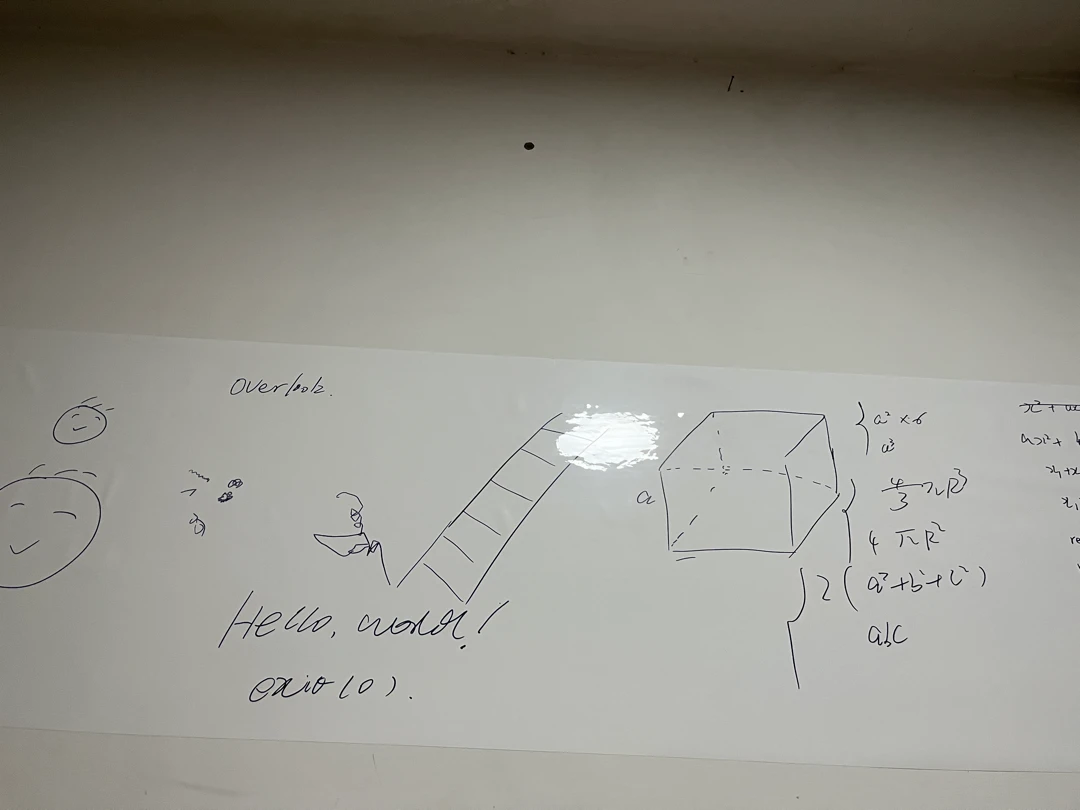 overlook.
Hello, world!
exit(0).
a
a² × 6
a³
4/3 πR³
4 πR²
2(a²+b²+c²)
abc
ax²+
x₁+x
x₁
re